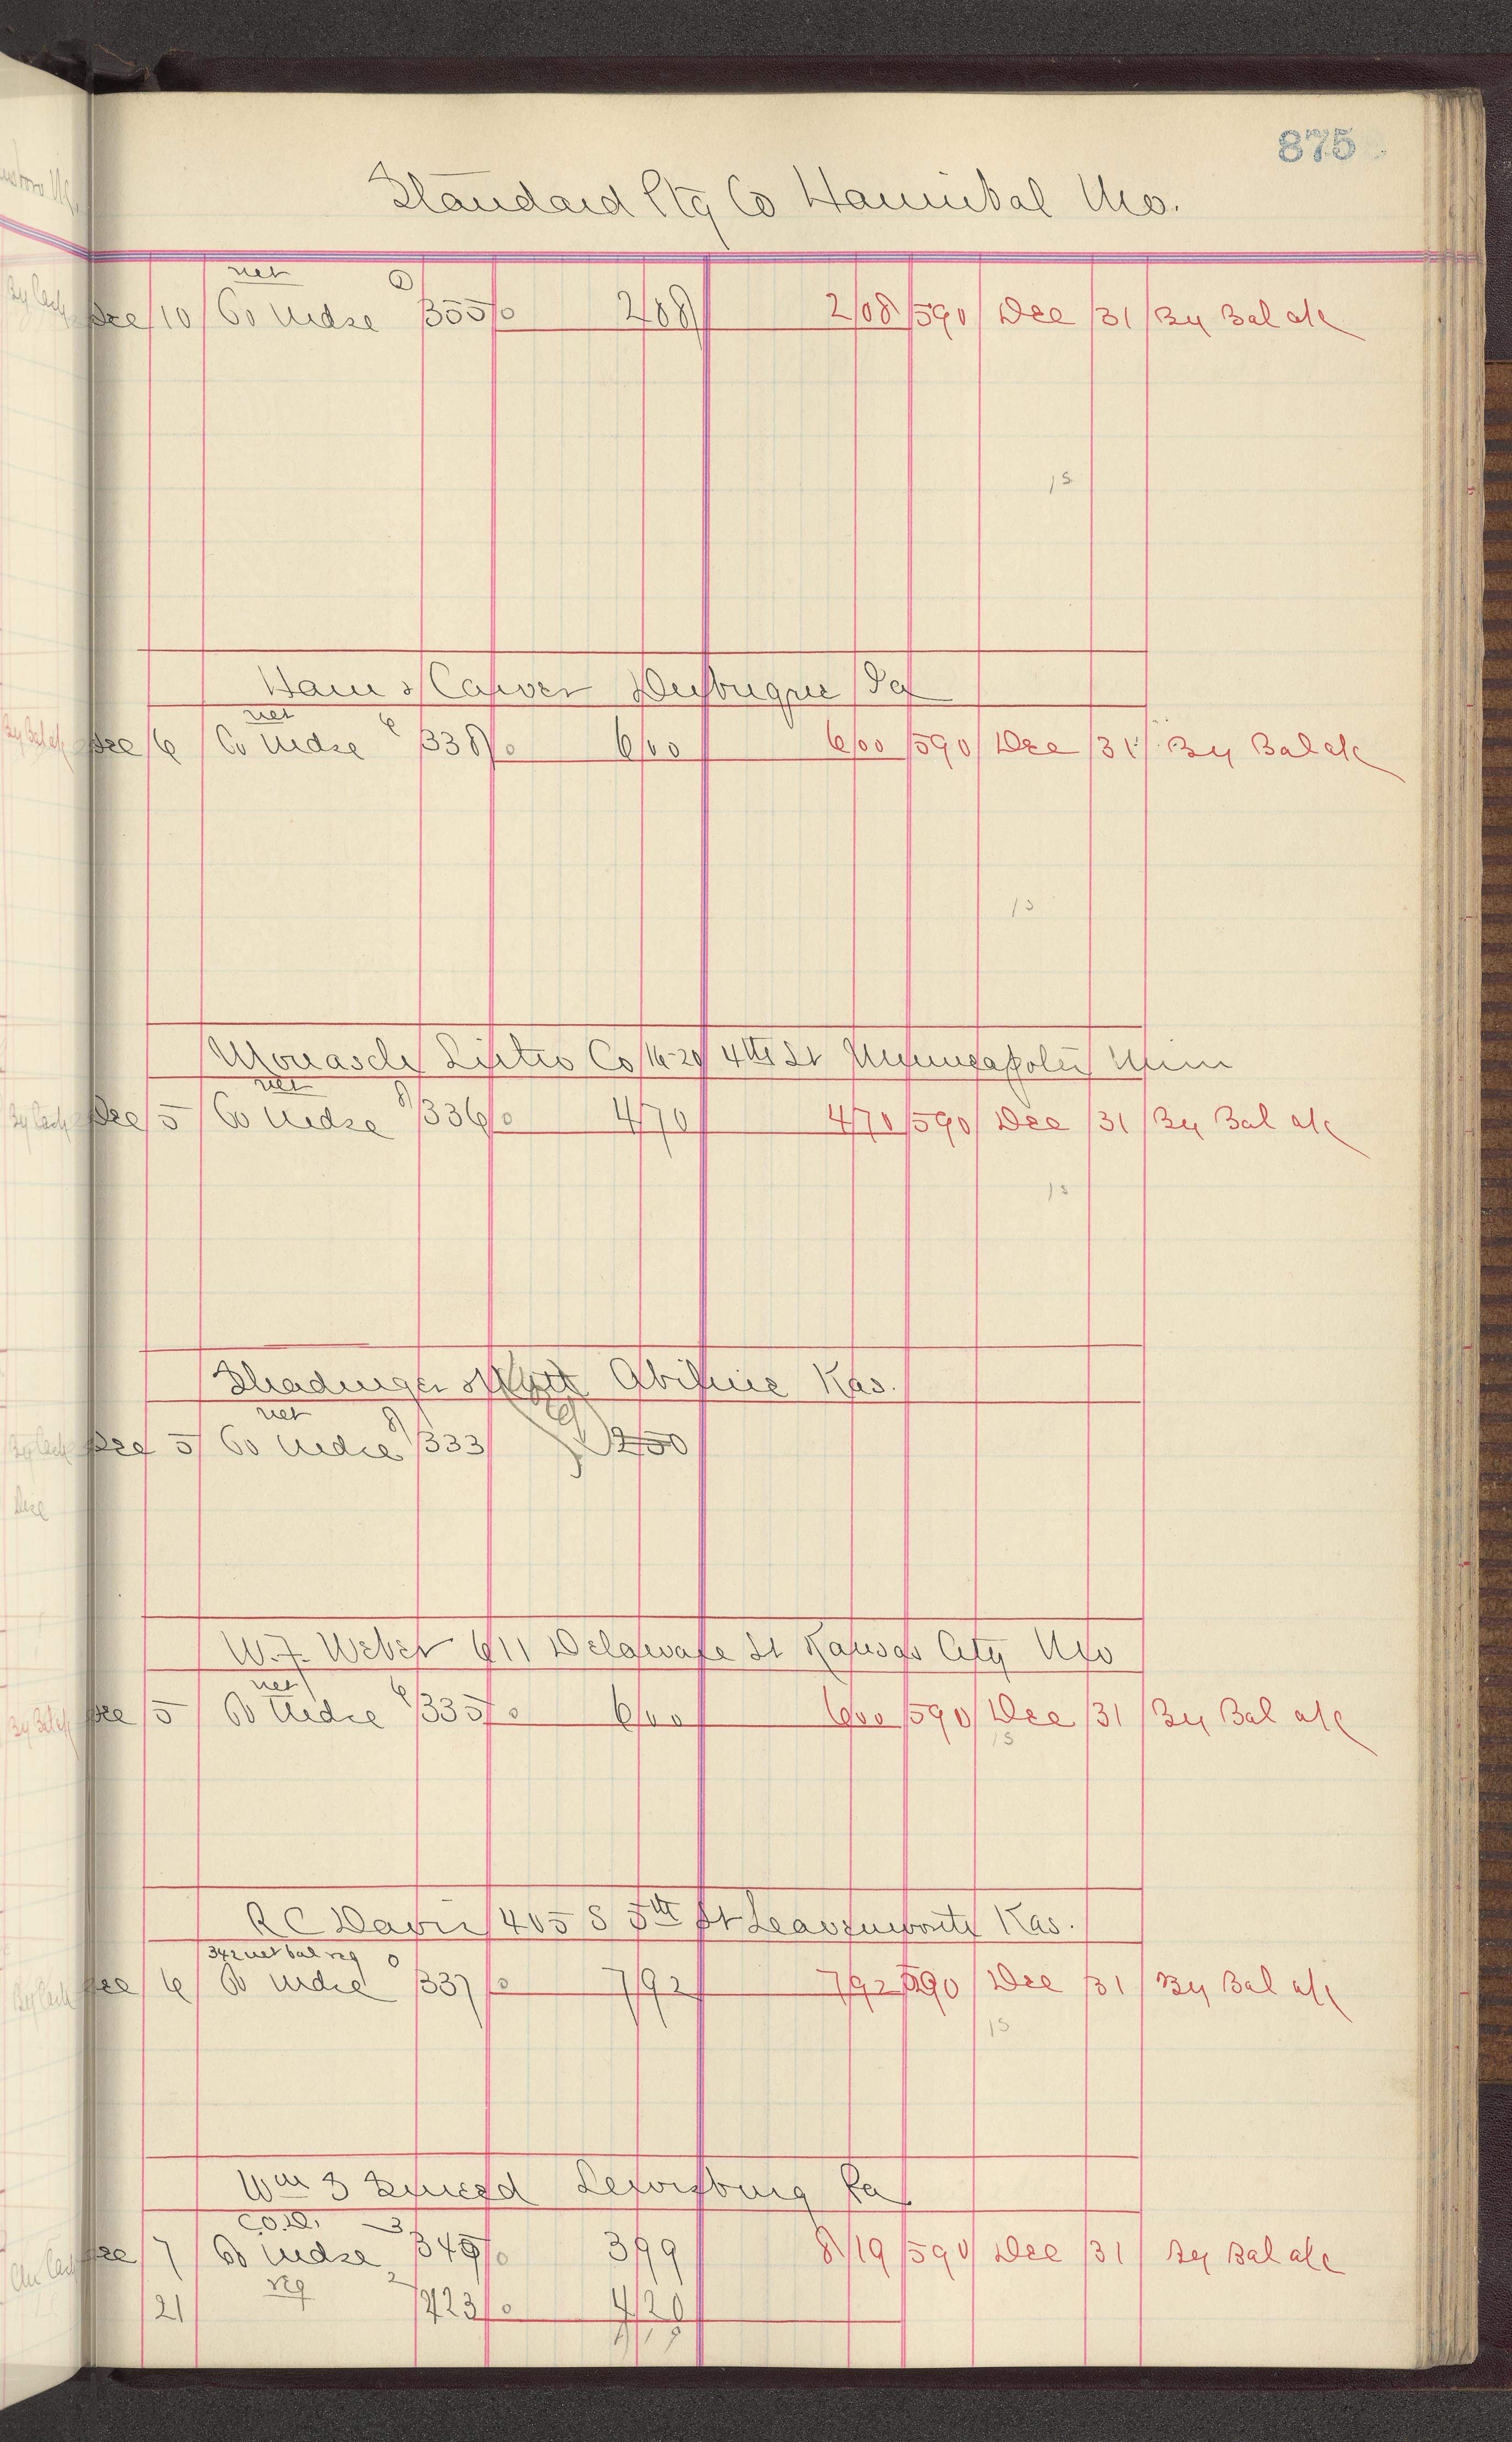 875
Standard Ptg Co Hannibal Mo.
net
Dec 10 To Mdse 355 2 08 2 08 590 Dec 31 By Bal a/c
15
Ham & Carver Dubuque Ia
net 6
Dec 6 To Mdse 338 6 00 6 00 590 Dec 31 By Bal a/c
15
Monasch Litho Co 16-20 4th St Minneapolis Minn
net 8
Dec 5 To Mdse 336 4 70 4 70 590 Dec 31 By Bal a/c
15
Shadinger & Abilene Kas.
net 8
Dec 5 To Mdse 333 2 50
W. F. Weber 611 Delaware St Kansas City Mo
net 6
Dec 5 To Mdse 335 6 00 6 00 590 Dec 31 By Bal a/c
15
R C Davis 405 S 5th St Leavenworth Kas.
342 net bal reg 0
Dec 6 To Mdse 337 7 92 7 92 590 Dec 31 By Bal a/c
15
Wm Lewisburg Pa
C.O.D. 3
Dec 7 To Mdse 345 3 99 8 19 590 Dec 31 By Bal a/c
reg 2
21 423 4 20
8 19